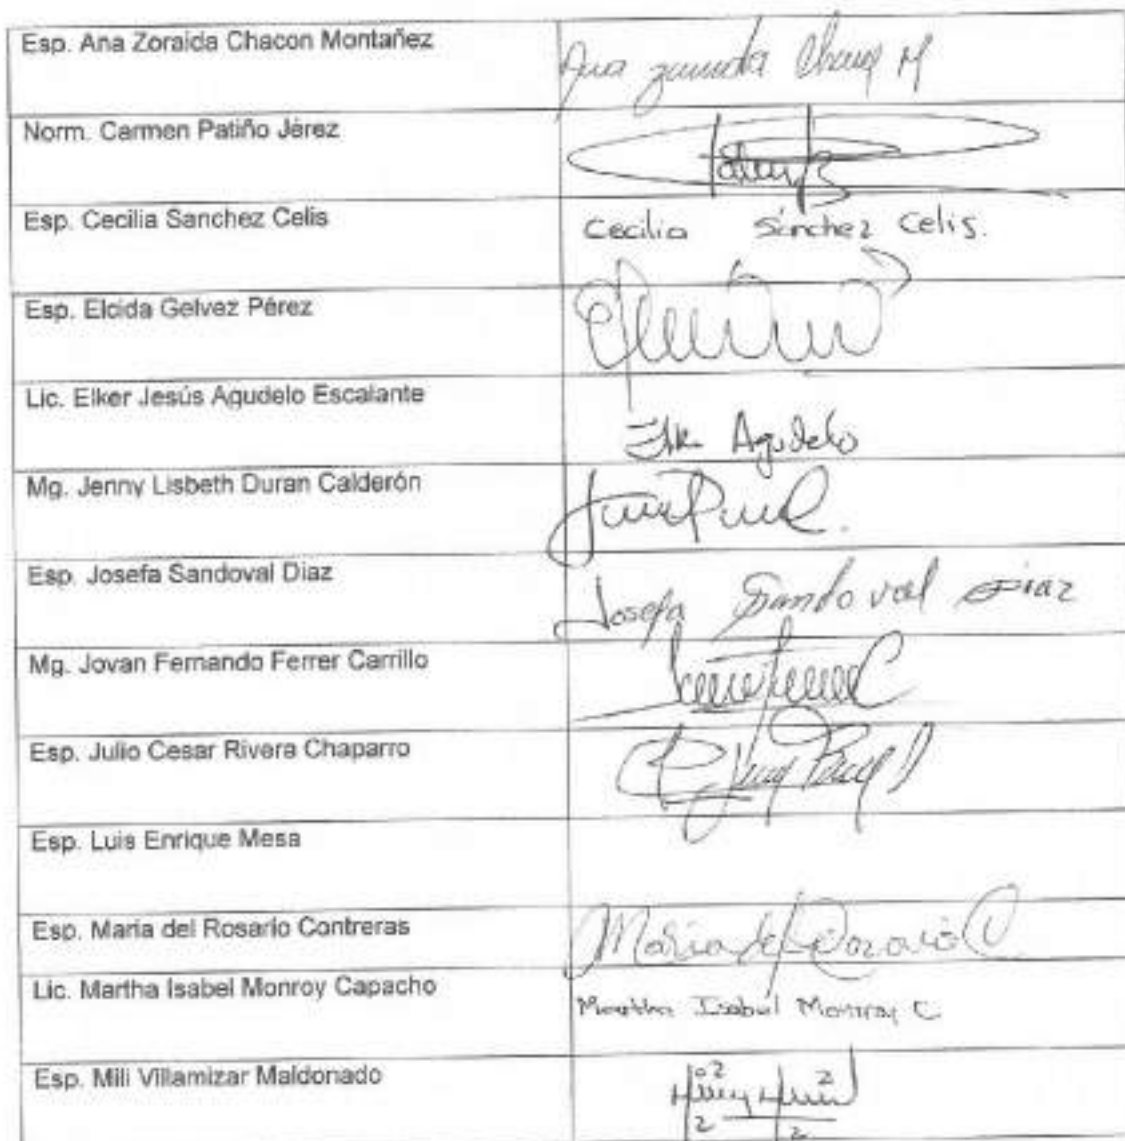 Esp. Ana Zoraida Chacon Montañez
Norm. Carmen Patiño Jérez
Esp. Cecilia Sanchez Celis Cecilia Sánchez Celis.
Esp. Elcida Gelvez Pérez
Lic. Elker Jesús Agudelo Escalante Elker Agudelo
Mg. Jenny Lisbeth Duran Calderón
Esp. Josefa Sandoval Diaz Josefa Sandoval Diaz
Mg. Jovan Fernando Ferrer Carrillo
Esp. Julio Cesar Rivera Chaparro
Esp. Luis Enrique Mesa
Esp. Maria del Rosario Contreras Maria del Rosario C
Lic. Martha Isabel Monroy Capacho Martha Isabel Monroy C.
Esp. Mili Villamizar Maldonado